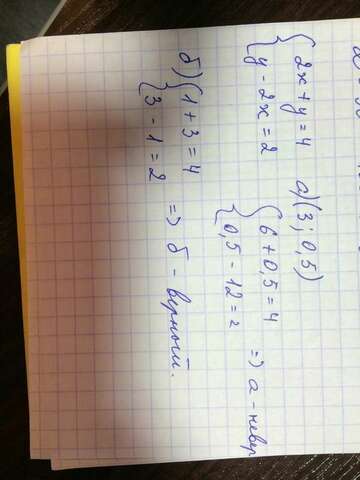 { 2x + y = 4
{ y - 2x = 2
а) (3; 0,5)
{ 6 + 0,5 = 4
{ 0,5 - 12 = 2 => а - невер
б) { 1 + 3 = 4
{ 3 - 1 = 2 => б - верный.